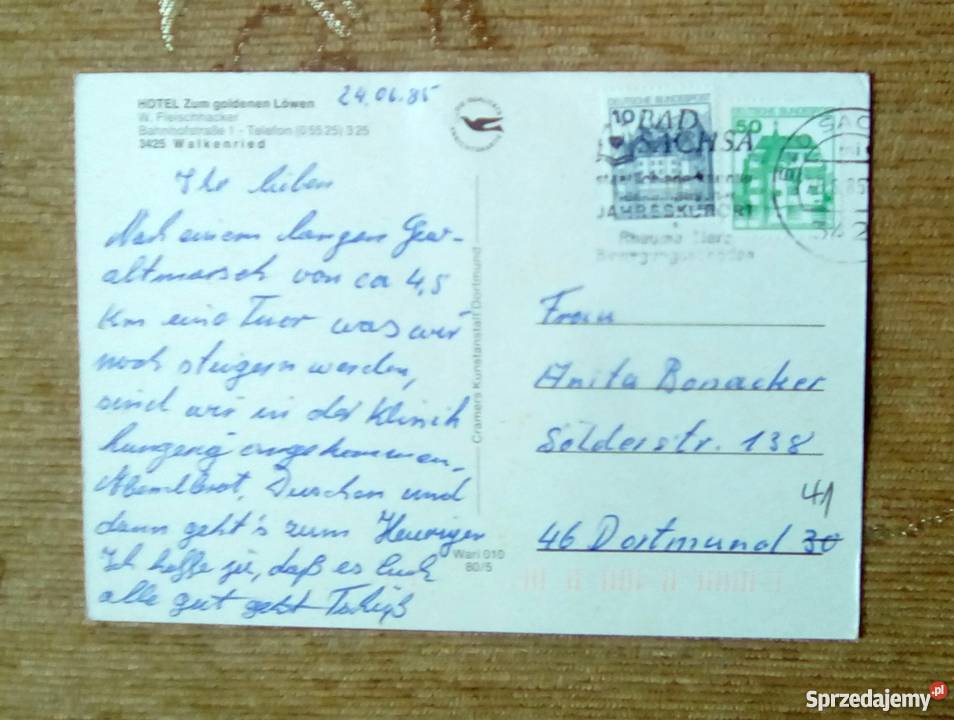 24.06.85
HOTEL Zum goldenen Löwen
W. Fleischhacker
Bahnhofstraße 1 - Telefon (0 55 25) 3 25
3425 Walkenried
Ihr lieben
Nach einem langen Gew-
altmarsch von ca 4,5
km eine Tuor was wir
noch steigern werden,
sind wir in der Klinik
hungerig angekommen.
Abendbrot, Duschen und
dann geht's zum Heurigen
Ich hoffe sie, daß es Euch
alle gut geht Tschüß
Cramers Kunstanstalt Dortmund
Wari 010
80/5
DEUTSCHE BUNDESPOST
10
DEUTSCHE BUNDESPOST
50
BAD
SACHSA
JAHRESKURORT
Rheuma Herz
Frau
Anita Bonacker
Sölderstr. 138
41
46 Dortmund 30
Sprzedajemy.pl